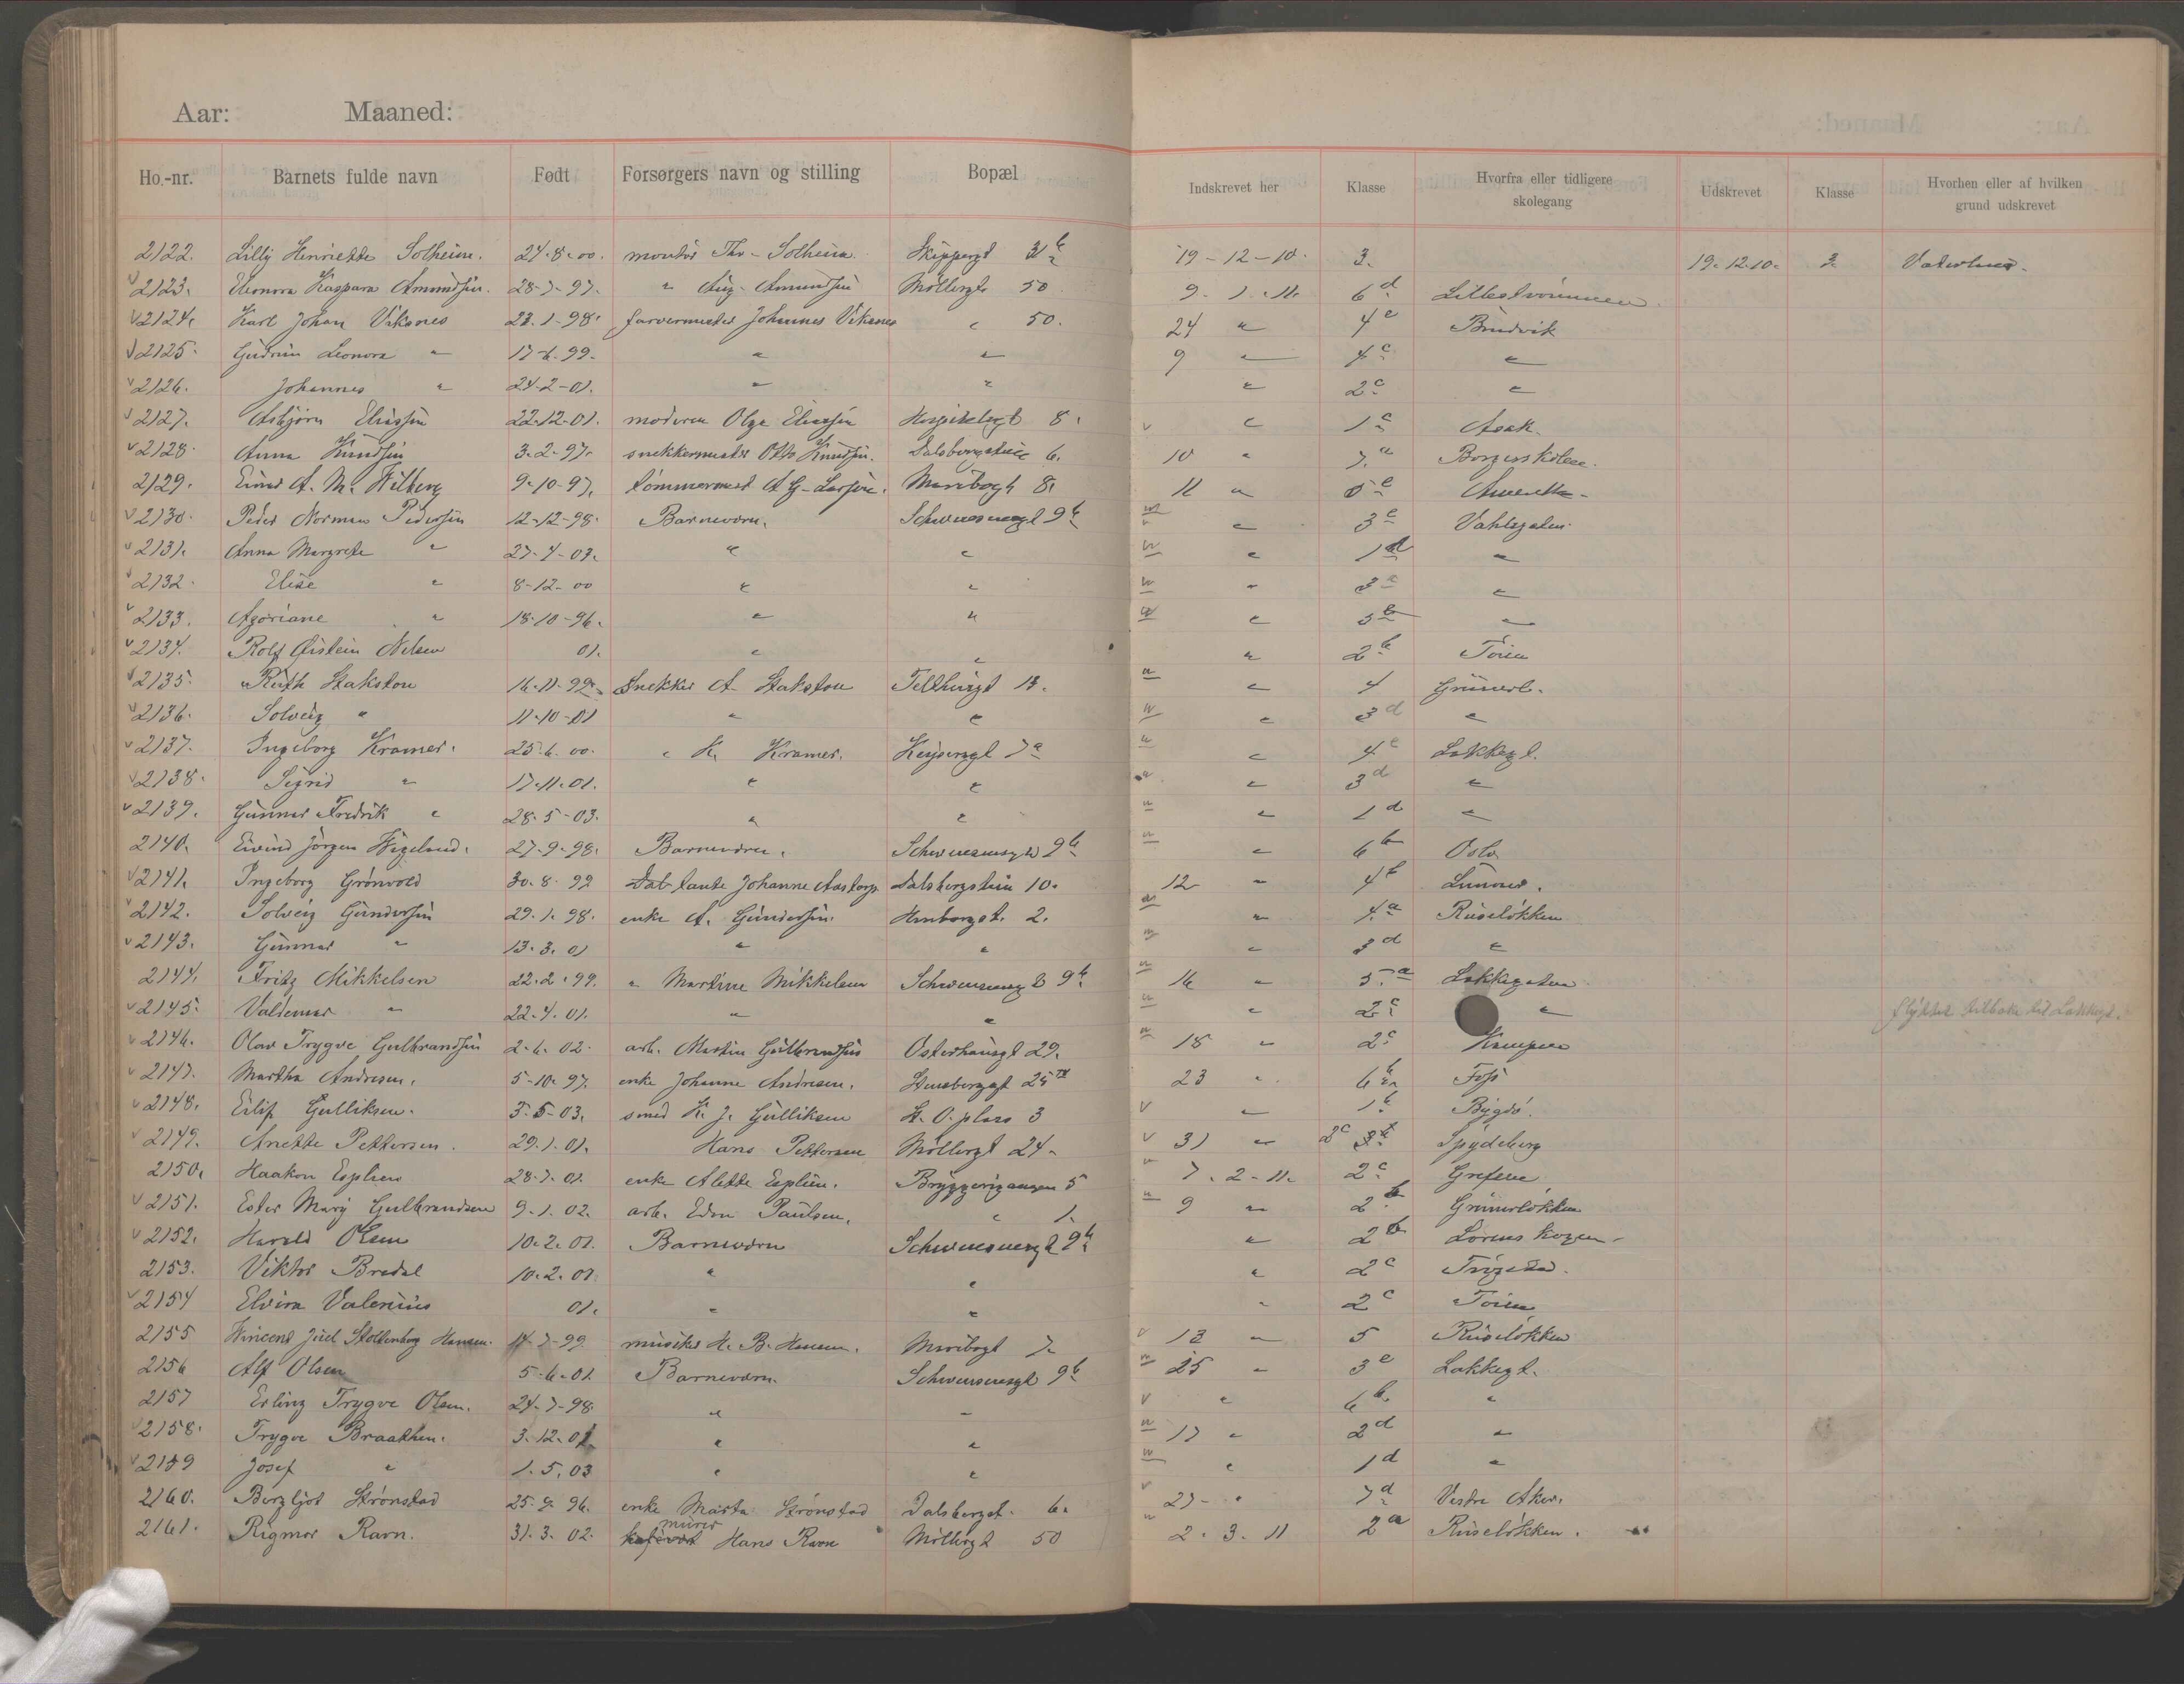 Aar: Maaned:
Ho.-nr. Barnets fulde navn Født Forsørgers navn og stilling Bopæl Indskrevet her Klasse Hvorfra eller tidligere skolegang Udskrevet Klasse Hvorhen eller af hvilken grund udskrevet
2122. Lilly Henriette Solheim. 24-8-00. montør Thv. Solheim. Skippergt 31b 19-12-10. 3. 19.12.10. 3.
2123. Eleonora Kaspara Amundsen. 28-7-97. " Aug. Amundsen Möllergt. 50 9. 1. 11. 6d Lilleströmmen
2124. Karl Johan Viksnes 23.1-98. farvermester Johannes Viksnes " 50. 24 " 4e Brudvik
2125. Gudrun Leonora " 17-6.99. " " 9 " 4c "
2126. Johannes " 24-2-01. " " " 2c "
2127. Asbjørn Eliassen 22-12-01. moderen Olga Eliassen 8. " 1c Asak
2128. Anna Knudsen 3-2-97. snekkermester Otto Knudsen. Dalsbergstien 6. 10 " 7a Borgerskolen.
2129. Einar A. M. Wilberg 9-10-97. tömmermest A G. Larsen. Maribogt 8. 11 " 5e Amerika
2130. Peder Norman Pedersen 12-12-98. Barneværn. Schwensensgt 9b " 3e Vahlsgaten
2131. Anna Margrete " 27-4-03. " " " 1d "
2132. Elise " 8-12-00 " " " 3a "
2133. " 18-10-96. " " " 5b "
2134. Rolf Øistein Nilsen 01. " " " 2b Töien
2135. Ruth Stakston 16-11-99. Snekker A. Stakston Telthusgt 13. " 4 Grünerl.
2136. Solveig " 11-10-01 " " " 3d "
2137. Ingeborg Kramer. 25.6.00. " K. Kramer. Keysersgt 7a " 4e Lakkegt.
2138. Sigrid " 17-11.01. " " " 3d "
2139. Gunnar Fredrik " 28.5-03. " " " 1d "
2140. Eivind Jørgen Wigelund. 27-9-98. Barneværn. Schwensensgt 9b " 6b Oslo
2141. Ingeborg Grönvold 30.8.99 tante Johanne Aastorp Dalsbergstien 10. 12 " 4b Lunner.
2142. Solveig Gundersen 29.1.98. enke A. Gundersen. 2. " 4a Ruselökken
2143. Gunnar " 13.3.01 " " " 3d "
2144. Fritz Mikkelsen 22.2.99. " Martine Mikkelsen Schwensensgt 9b 16 " 5a Lakkegaten
2145. Valdemar " 22.4.01. " " " 2c " flyttet tilbake til Lakkegt.
2146. Olav Trygve Gulbrandsen 2.6.02. arb. Martin Gulbrandsen Osterhausgt 29. 18 " 2c Kampen
2147. Martha Andresen. 5-10-97. enke Johanne Andresen. Stensberggt 25 IV 23 " 6b Foss
2148. Eilif Gulliksen. 5-03. smed K. J. Gulliksen St. O. plass 3 " 1b Bygdö.
2149. Anette Pettersen. 29.1.01. Hans Pettersen Möllergt 24. 31 " 2c 3b Spydeberg
2150. Haakon Esplien 28-7.01. enke Alette Esplien. Bryggerigangen 5 7.2-11. 2c Grefsen
2151. Ester Mary Gulbrandsen 9.1.02. arb. Edv. Paulsen. " 1. 9 " 2b Grünerlökken
2152. Harald Olsen 10.2.01. Barneværn Schwensensgt 9b " 2b Lörenskogen
2153. Viktor Bredal 10.2.01. " " " 2c Trögstad.
2154 Elvira Valerius 01. " " " 2c Töien
2155 Wincent Juel Stoltenberg Hansen. 14-7-99. musiker H. B. Hansen. Maribogt 7. 13 " 5 Ruselökken
2156 Alf Olsen 5-6-01. Barneværn. Schwensensgt 9b 25 " 3e Lakkegt.
2157 Erling Trygve Olsen. 24-7-98. " " " 6b. "
2158. Trygve Braathen. 3-12.01 " " 17 " 2d "
2159 Josef " 1.5.03 " " " 1d "
2160. Bergljot Strönstad 25.9.96. enke Marta Strönstad Dalsbergst. 6. 27- " 7d Vestre Aker.
2161. Rigmor Ravn. 31.3.02. murer Hans Ravn Möllergt 50 2.3.11 2a Ruselökken.